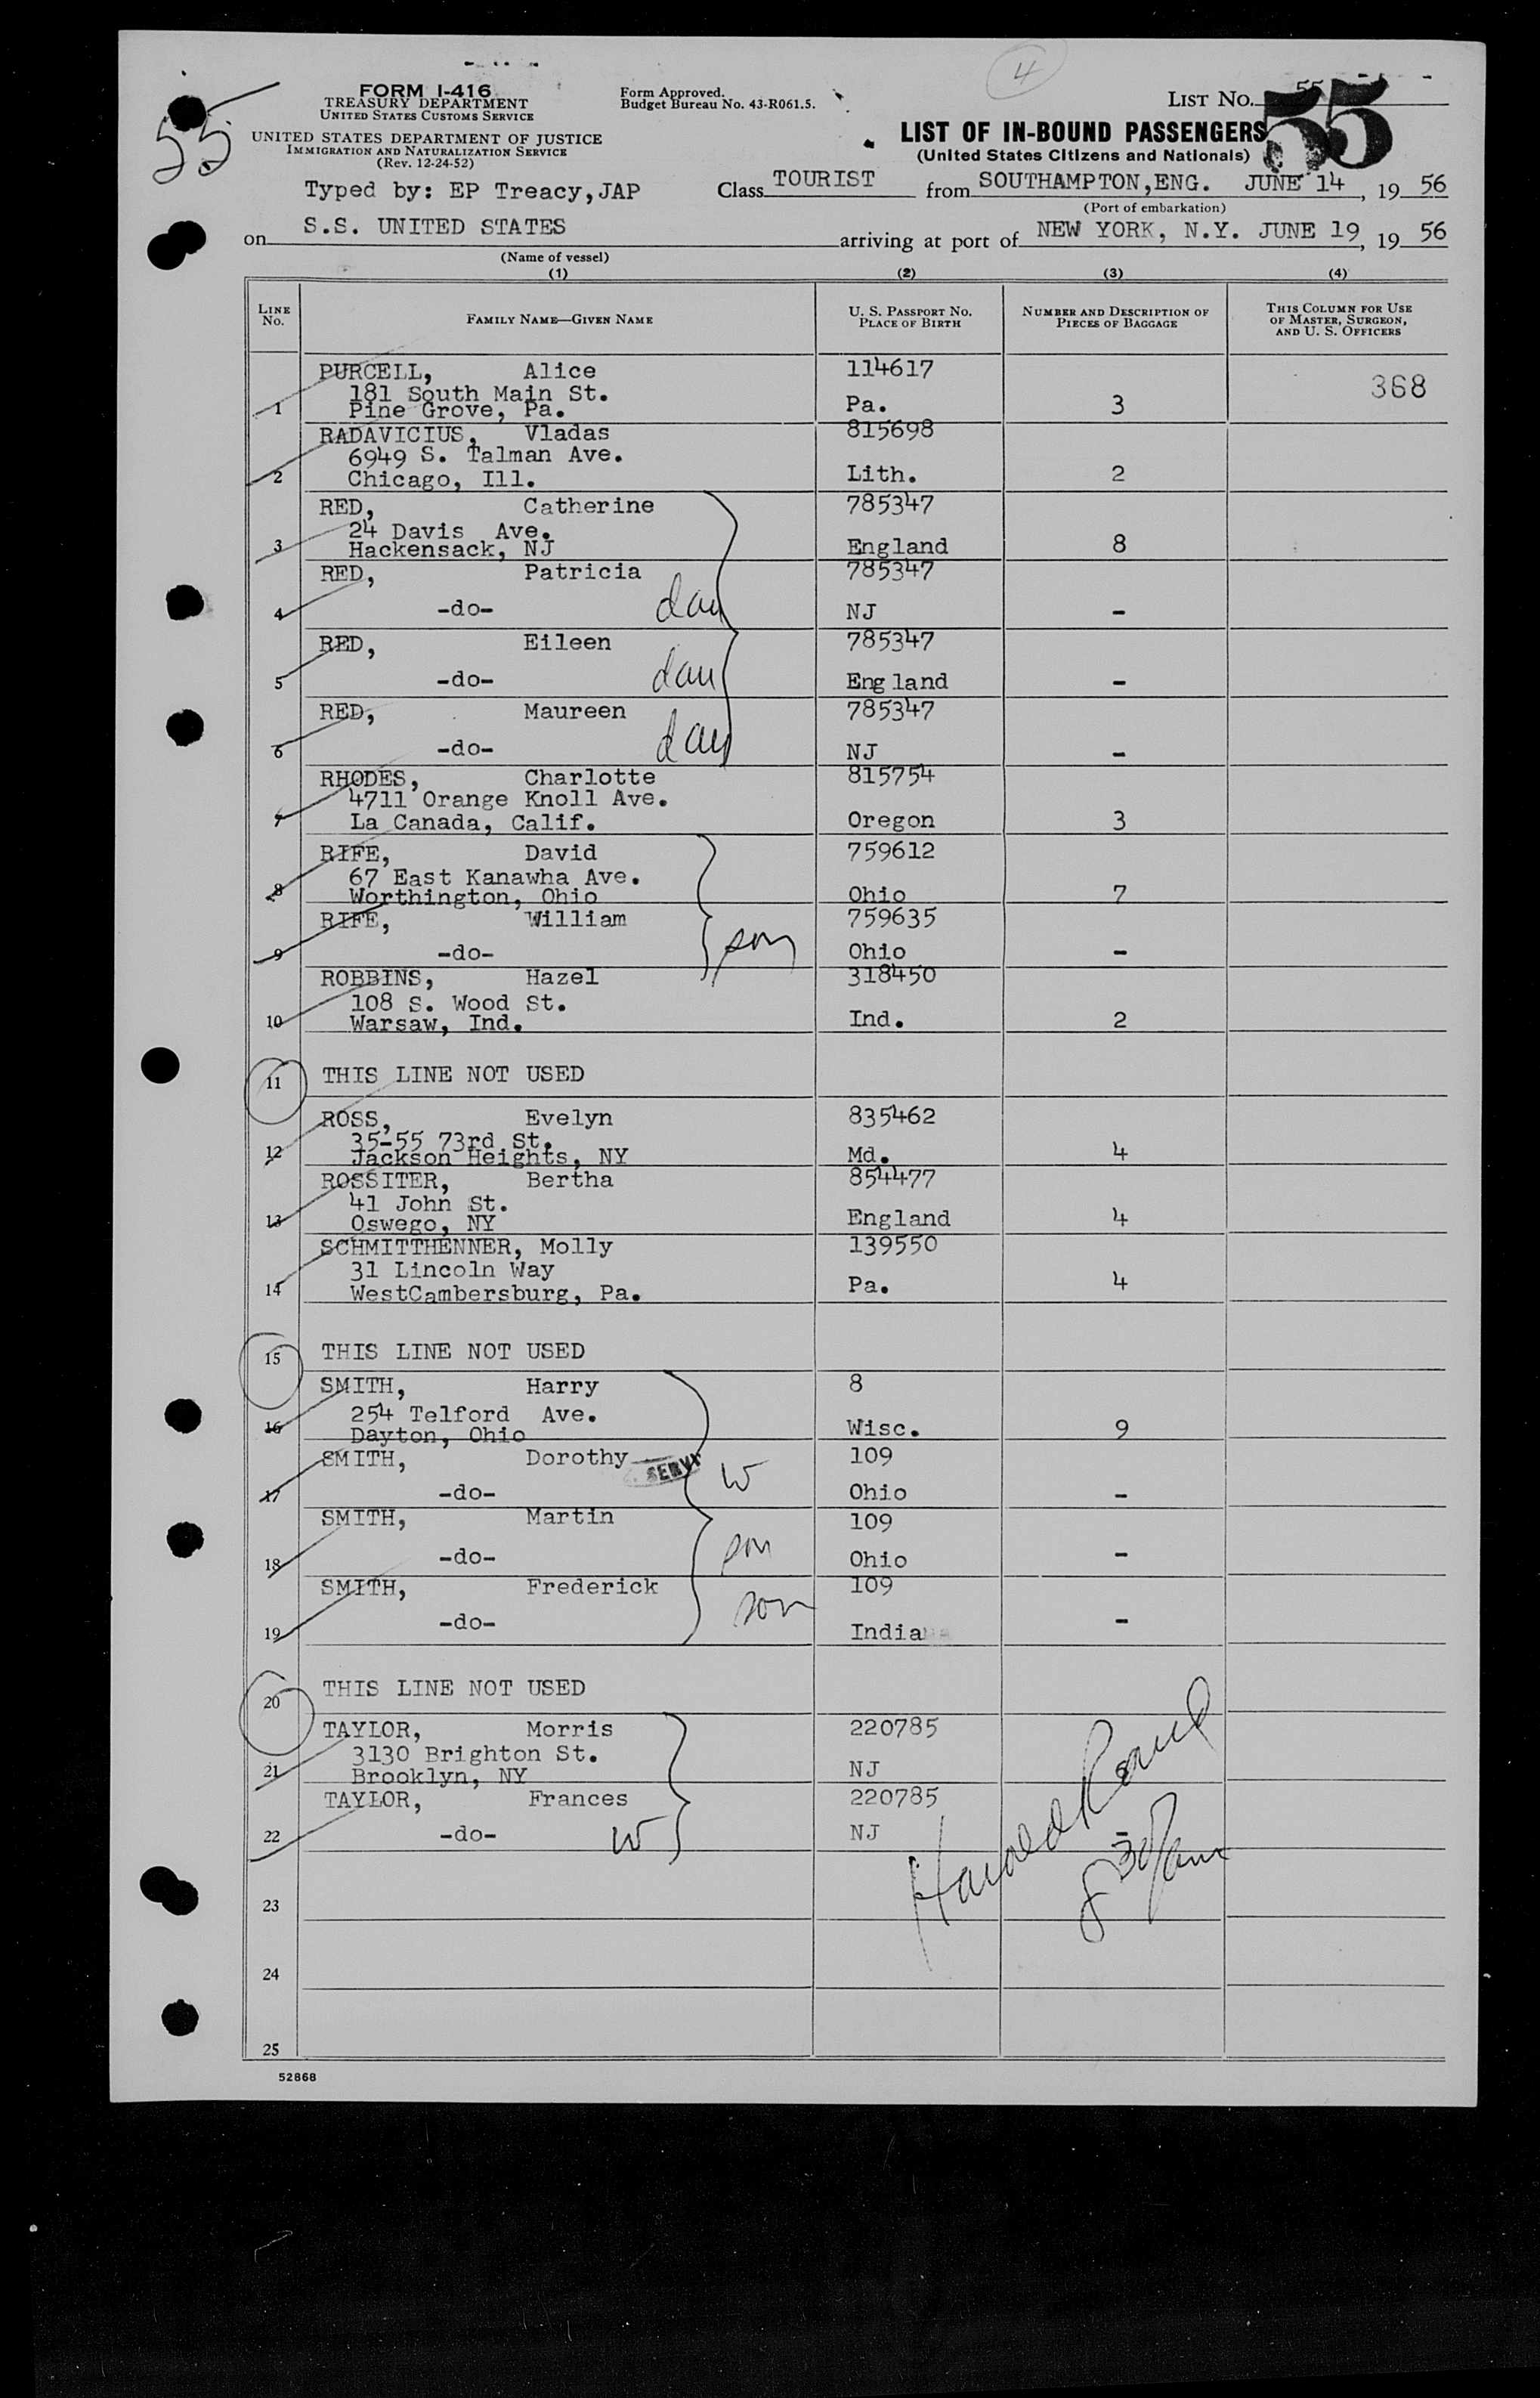 4
55
FORM I-416
TREASURY DEPARTMENT
UNITED STATES CUSTOMS SERVICE
UNITED STATES DEPARTMENT OF JUSTICE
IMMIGRATION AND NATURALIZATION SERVICE
(Rev. 12-24-52)
Form Approved.
Budget Bureau No. 43-R061.5.
LIST NO. 55
55
LIST OF IN-BOUND PASSENGERS
(United States Citizens and Nationals)
Typed by: EP Treacy, JAP
Class TOURIST from SOUTHAMPTON, ENG. JUNE 14, 19 56
(Port of embarkation)
on S.S. UNITED STATES arriving at port of NEW YORK, N.Y. JUNE 19, 19 56
(Name of vessel)
(1) (2) (3) (4)
LINE NO. FAMILY NAME—GIVEN NAME U. S. PASSPORT NO. PLACE OF BIRTH NUMBER AND DESCRIPTION OF PIECES OF BAGGAGE THIS COLUMN FOR USE OF MASTER, SURGEON, AND U. S. OFFICERS
PURCELL, Alice 114617
181 South Main St. 368
1 Pine Grove, Pa. Pa. 3
RADAVICIUS, Vladas 815698
6949 S. Talman Ave.
2 Chicago, Ill. Lith. 2
RED, Catherine 785347
24 Davis Ave.
3 Hackensack, NJ England 8
RED, Patricia 785347
4 -do- dau NJ -
RED, Eileen 785347
5 -do- dau England -
RED, Maureen 785347
6 -do- dau NJ -
RHODES, Charlotte 815754
4711 Orange Knoll Ave.
7 La Canada, Calif. Oregon 3
RIFE, David 759612
67 East Kanawha Ave.
8 Worthington, Ohio Ohio 7
RIFE, William 759635
9 -do- son Ohio -
ROBBINS, Hazel 318450
108 S. Wood St.
10 Warsaw, Ind. Ind. 2
11 THIS LINE NOT USED
ROSS, Evelyn 835462
35-55 73rd St.
12 Jackson Heights, NY Md. 4
ROSSITER, Bertha 854477
41 John St.
13 Oswego, NY England 4
SCHMITTHENNER, Molly 139550
31 Lincoln Way
14 WestCambersburg, Pa. Pa. 4
15 THIS LINE NOT USED
SMITH, Harry 8
254 Telford Ave.
16 Dayton, Ohio Wisc. 9
SMITH, Dorothy 109
17 -do- W Ohio -
SMITH, Martin 109
18 -do- son Ohio -
SMITH, Frederick 109
19 -do- son India -
20 THIS LINE NOT USED
TAYLOR, Morris 220785
3130 Brighton St.
21 Brooklyn, NY NJ
TAYLOR, Frances 220785
22 -do- W NJ -
Harold
8 30/am
23
24
25
52868